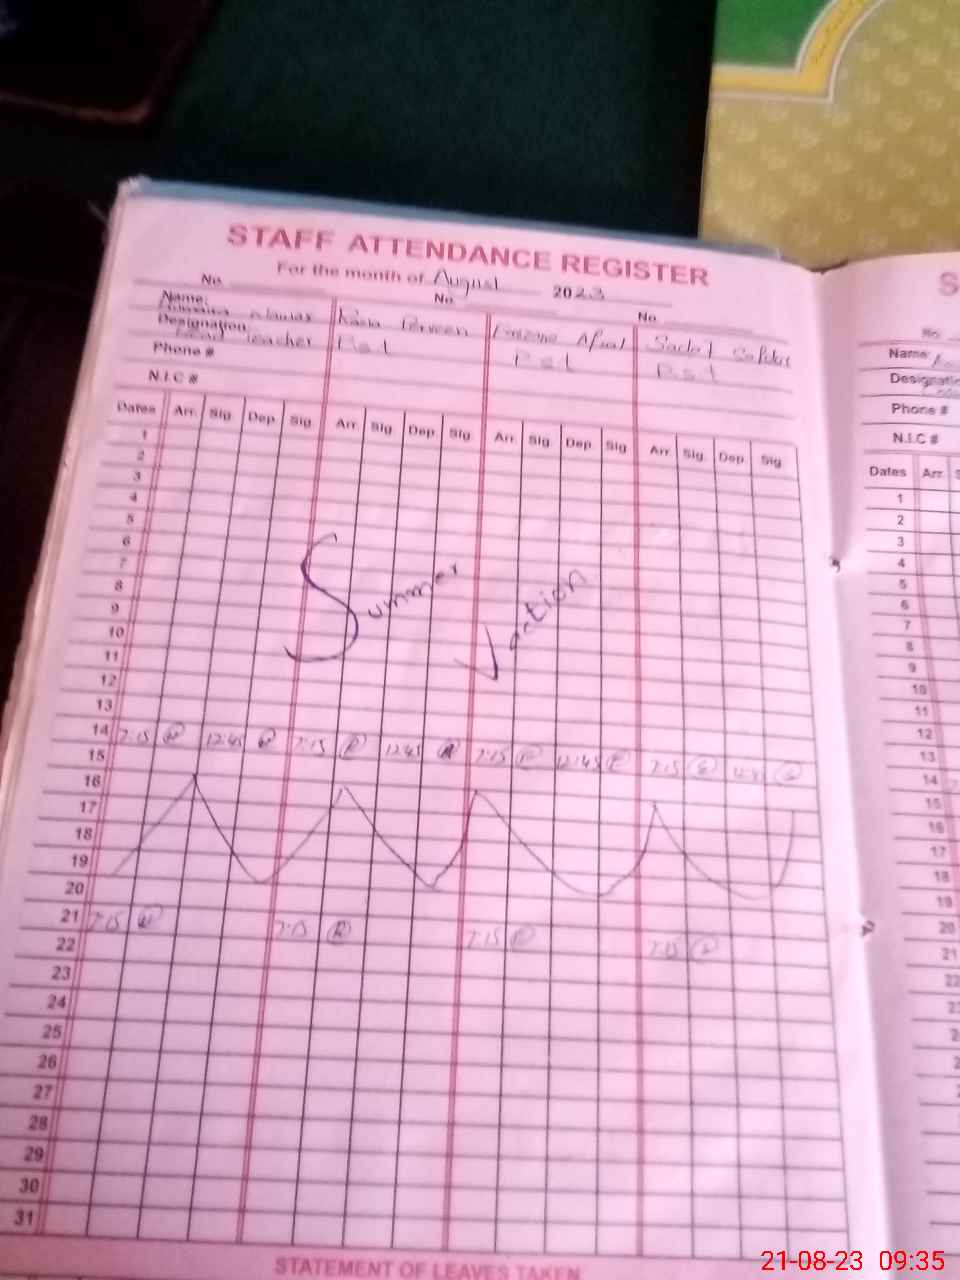 STAFF ATTENDANCE REGISTER
For the month of August 2023
No. No. No.
Name:
Perveen Afzal
Designation Head Teacher P.s.t P.s.t P.s.t
Phone #
N.I.C #
Dates Arr. Sig. Dep. Sig. Arr. Sig. Dep. Sig. Arr. Sig. Dep. Sig Arr. Sig. Dep. Sig.
1
2
3
4
5
6
7
8
9
10
11
12
13
Summer Vaction
14 7:15 12:45 7:15 12:45 7:15 12:45 7:15 12:45
15
16
17
18
19
20
21 7:15 7:15 7:15 7:15
22
23
24
25
26
27
28
29
30
31
STATEMENT OF LEAVES TAKEN
S
No.
Name:
Phone #
N.I.C #
Dates Arr.
1
2
3
4
5
6
7
8
9
10
11
12
13
14
15
16
17
18
19
20
21
22
21-08-23 09:35